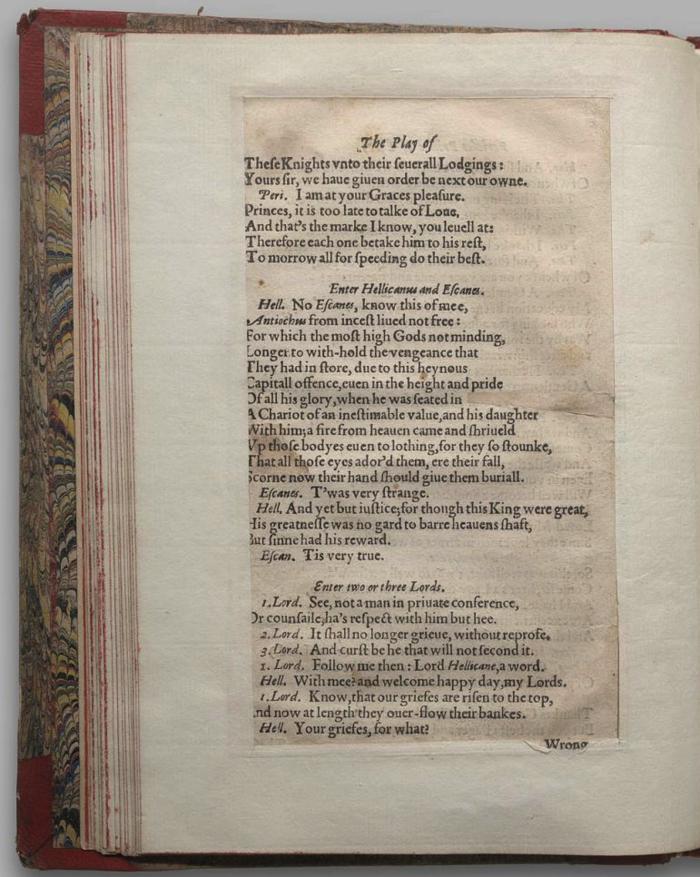 The Play of
Theſe Knights vnto their ſeuerall Lodgings:
Yours ſir, we haue giuen order be next our owne.
Peri. I am at your Graces pleaſure.
Princes, it is too late to talke of Loue,
And that's the marke I know, you leuell at:
Therefore each one betake him to his reſt,
To morrow all for ſpeeding do their beſt.
Enter Hellicanus and Eſcanes.
Hell. No Eſcanes, know this of mee,
Antiochus from inceſt liued not free:
For which the moſt high Gods not minding,
Longer to with-hold the vengeance that
They had in ſtore, due to this heynous
Capitall offence, euen in the height and pride
Of all his glory, when he was ſeated in
A Chariot of an ineſtimable value, and his daughter
With him; a fire from heauen came and ſhriueld
Vp thoſe bodyes euen to lothing, for they ſo ſtounke,
That all thoſe eyes ador'd them, ere their fall,
Scorne now their hand ſhould giue them buriall.
Eſcanes. T'was very ſtrange.
Hell. And yet but iuſtice; for though this King were great,
His greatneſſe was no gard to barre heauens ſhaft,
But ſinne had his reward.
Eſcan. Tis very true.
Enter two or three Lords.
1. Lord. See, not a man in priuate conference,
Or counſaile, ha's reſpect with him but hee.
2. Lord. It ſhall no longer grieue, without reprofe.
3. Lord. And curſt be he that will not ſecond it.
1. Lord. Follow me then: Lord Hellicane, a word.
Hell. With mee? and welcome happy day, my Lords.
1. Lord. Know, that our griefes are riſen to the top,
And now at length they ouer-flow their bankes.
Hell. Your griefes, for what?
Wrong